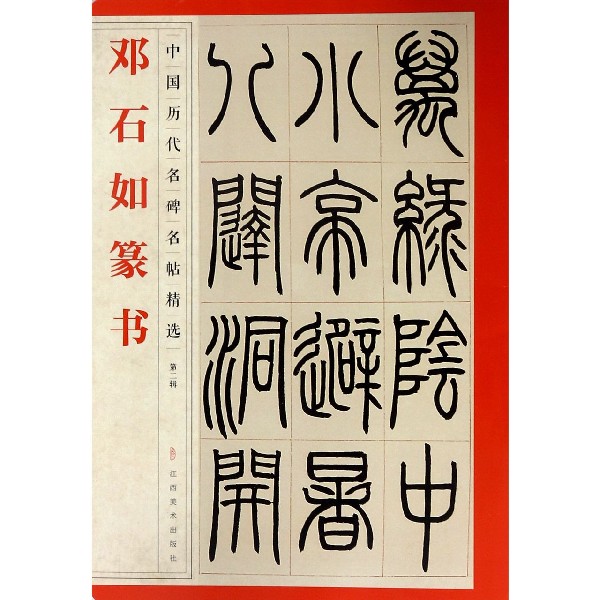 邓石如篆书
中国历代名碑名帖精选
第二辑
江西美术出版社
萬綠陰中
小亭避暑
八闥洞開